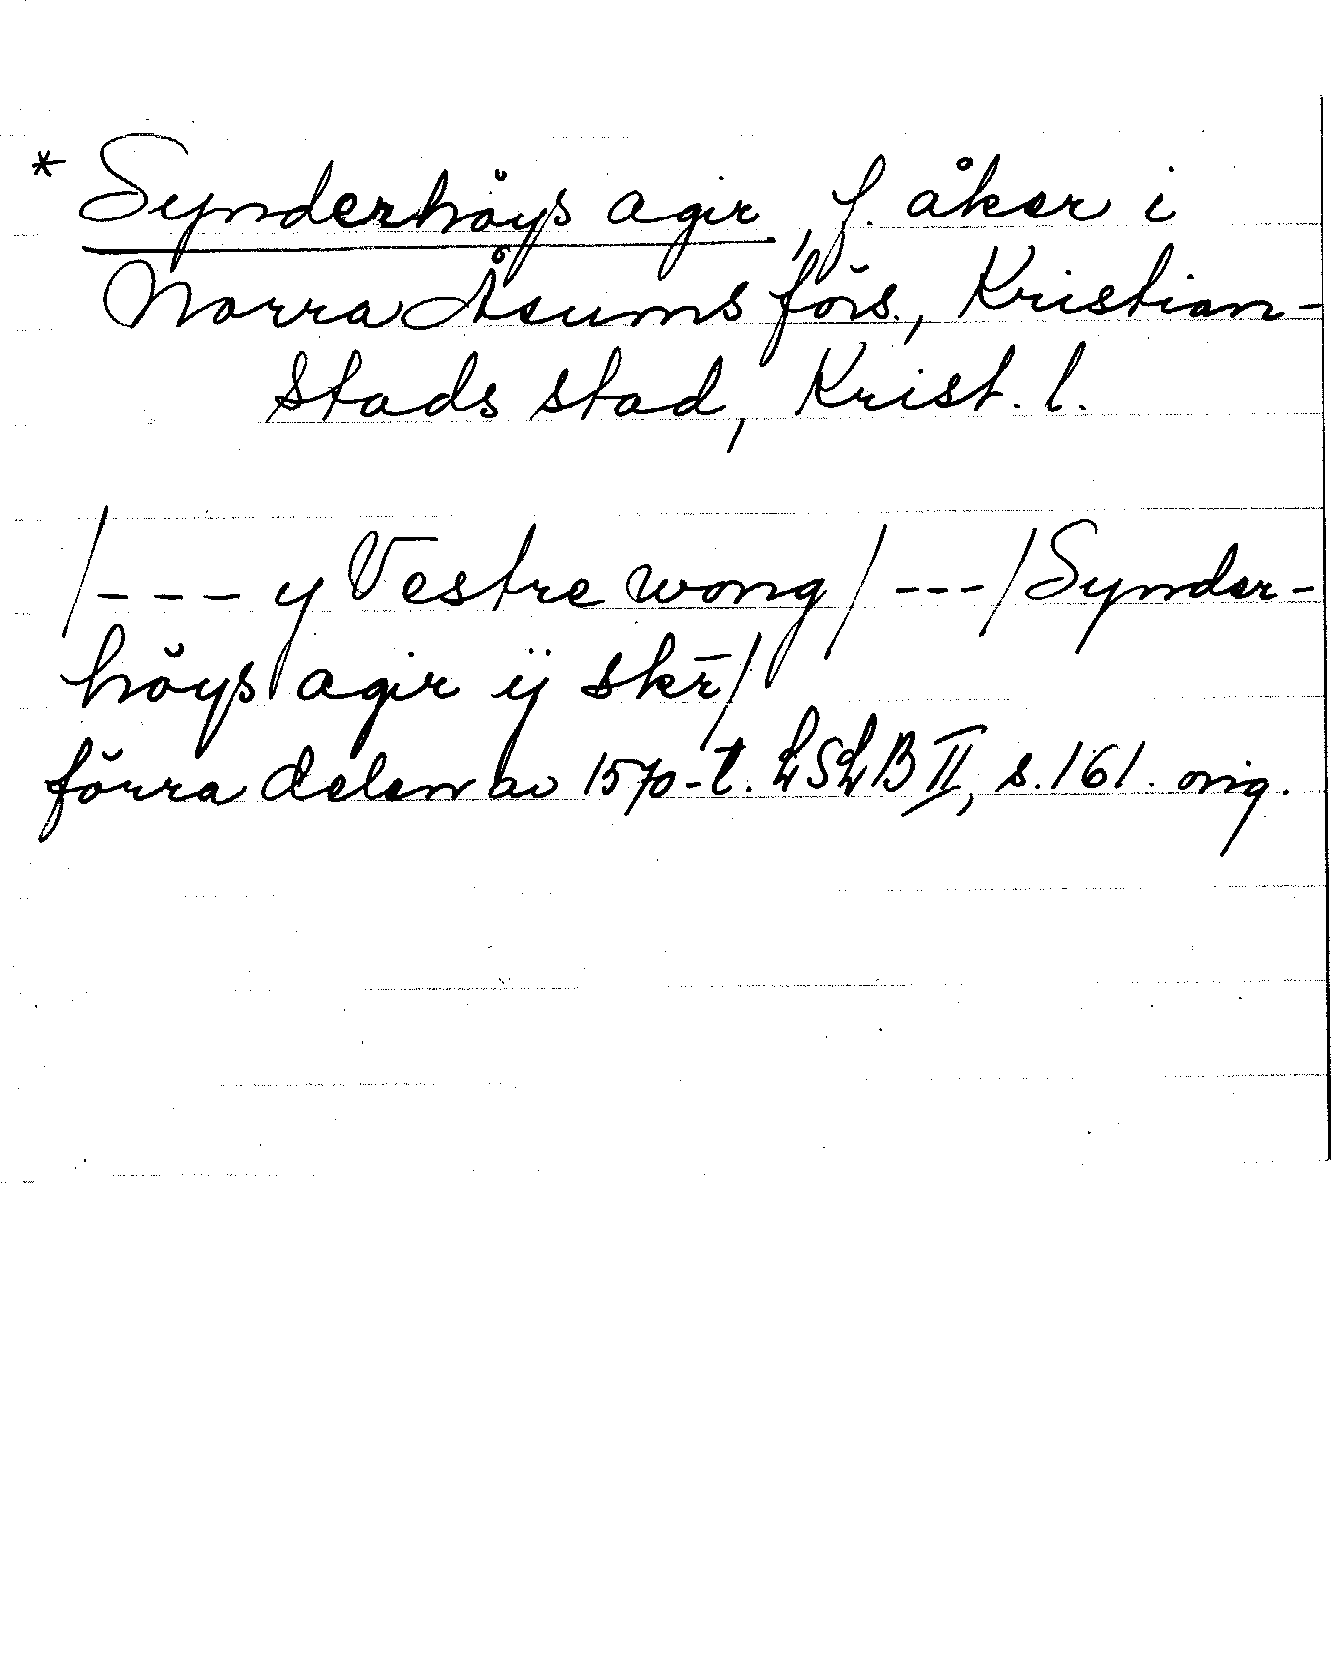 * Synderhöys agir, f. åker i
Norra Åsums förs., Kristian-
stads stad, Krist. l.
/--- y Vestre wong/ ---/ Synder-
höys agir ij skr̄/
förra delen av 1570-t. LSLB II, s. 161. orig.